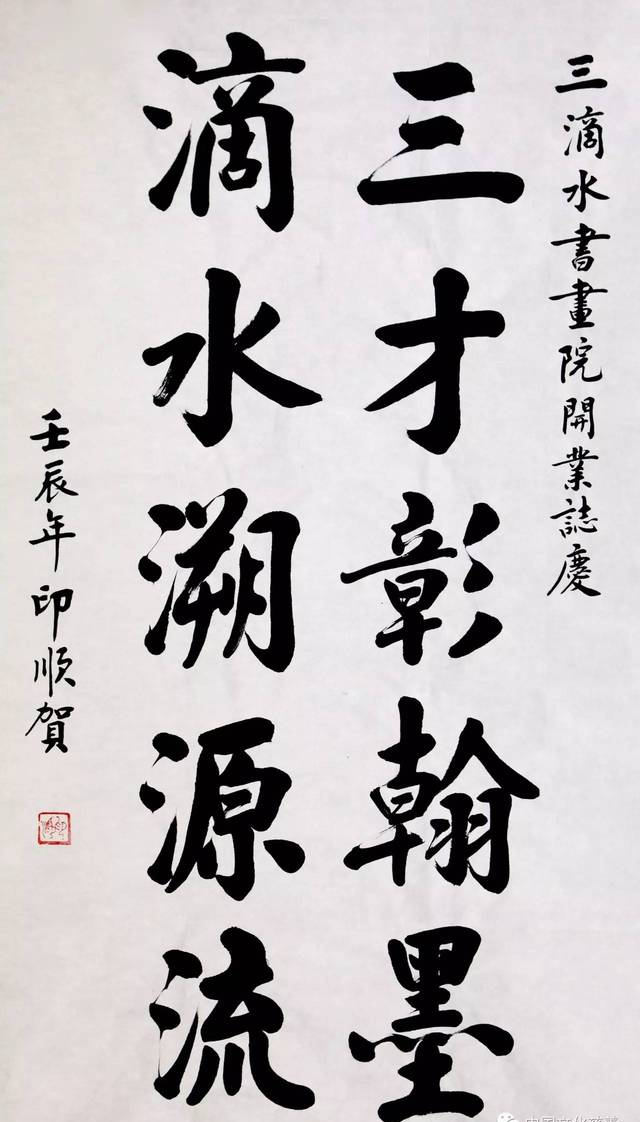 三滴水書畫院開業誌慶
三才彰翰墨
滴水溯源流
壬辰年印順賀